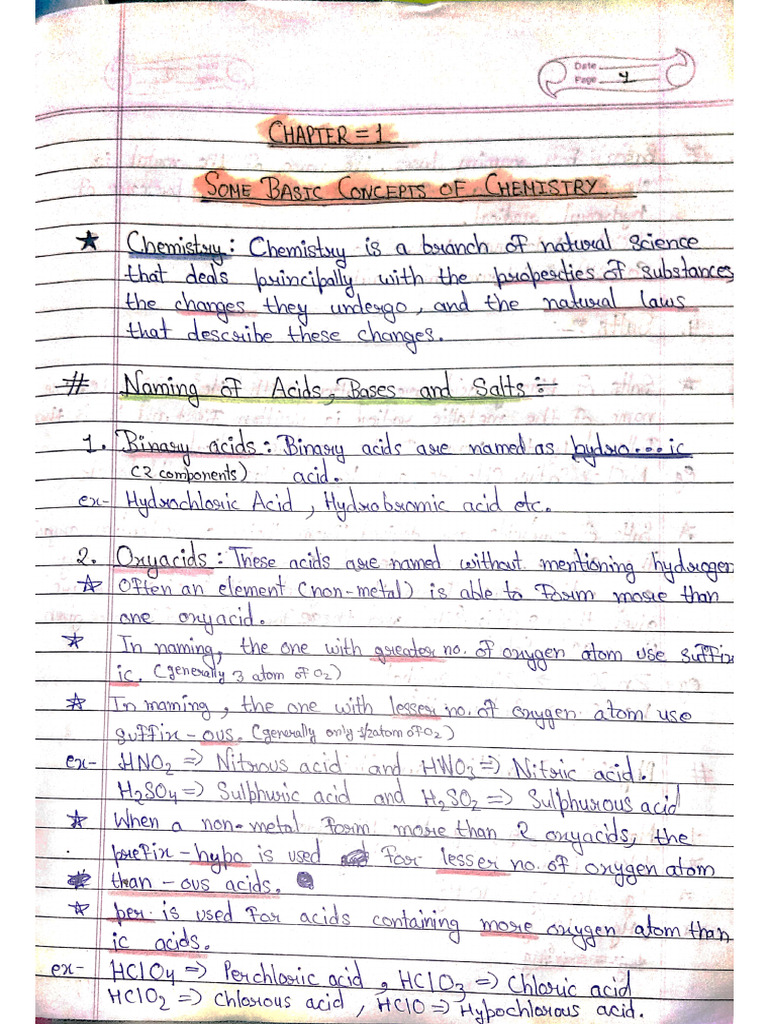 Date
Page 4
CHAPTER = 1
SOME BASIC CONCEPTS OF CHEMISTRY
★ Chemistry : Chemistry is a branch of natural science
that deals principally with the properties of substances
the changes they undergo, and the natural laws
that describe these changes.
# Naming of Acids, Bases and Salts :-
1. Binary acids : Binary acids are named as hydro....ic
(2 components) acid.
ex- Hydrochloric Acid, Hydrobromic acid etc.
2. Oxyacids : These acids are named without mentioning hydrogen
☆ Often an element (non-metal) is able to form more than
one oxyacid.
☆ In naming, the one with greater no. of oxygen atom use suffix
ic. (generally 3 atom of O2)
☆ In naming, the one with lesser no. of oxygen atom use
suffix - ous. (generally only 1/2 atom of O2)
ex- HNO2 => Nitrous acid and HNO3 => Nitric acid.
H2SO4 => Sulphuric acid and H2SO2 => Sulphurous acid
☆ When a non-metal form more than 2 oxyacids, the
prefix - hypo is used for lesser no. of oxygen atom
than - ous acids.
☆ per is used for acids containing more oxygen atom than
ic acids.
ex- HClO4 => Perchloric acid, HClO3 => Chloric acid
HClO2 => Chlorous acid, HClO => Hypochlorous acid.